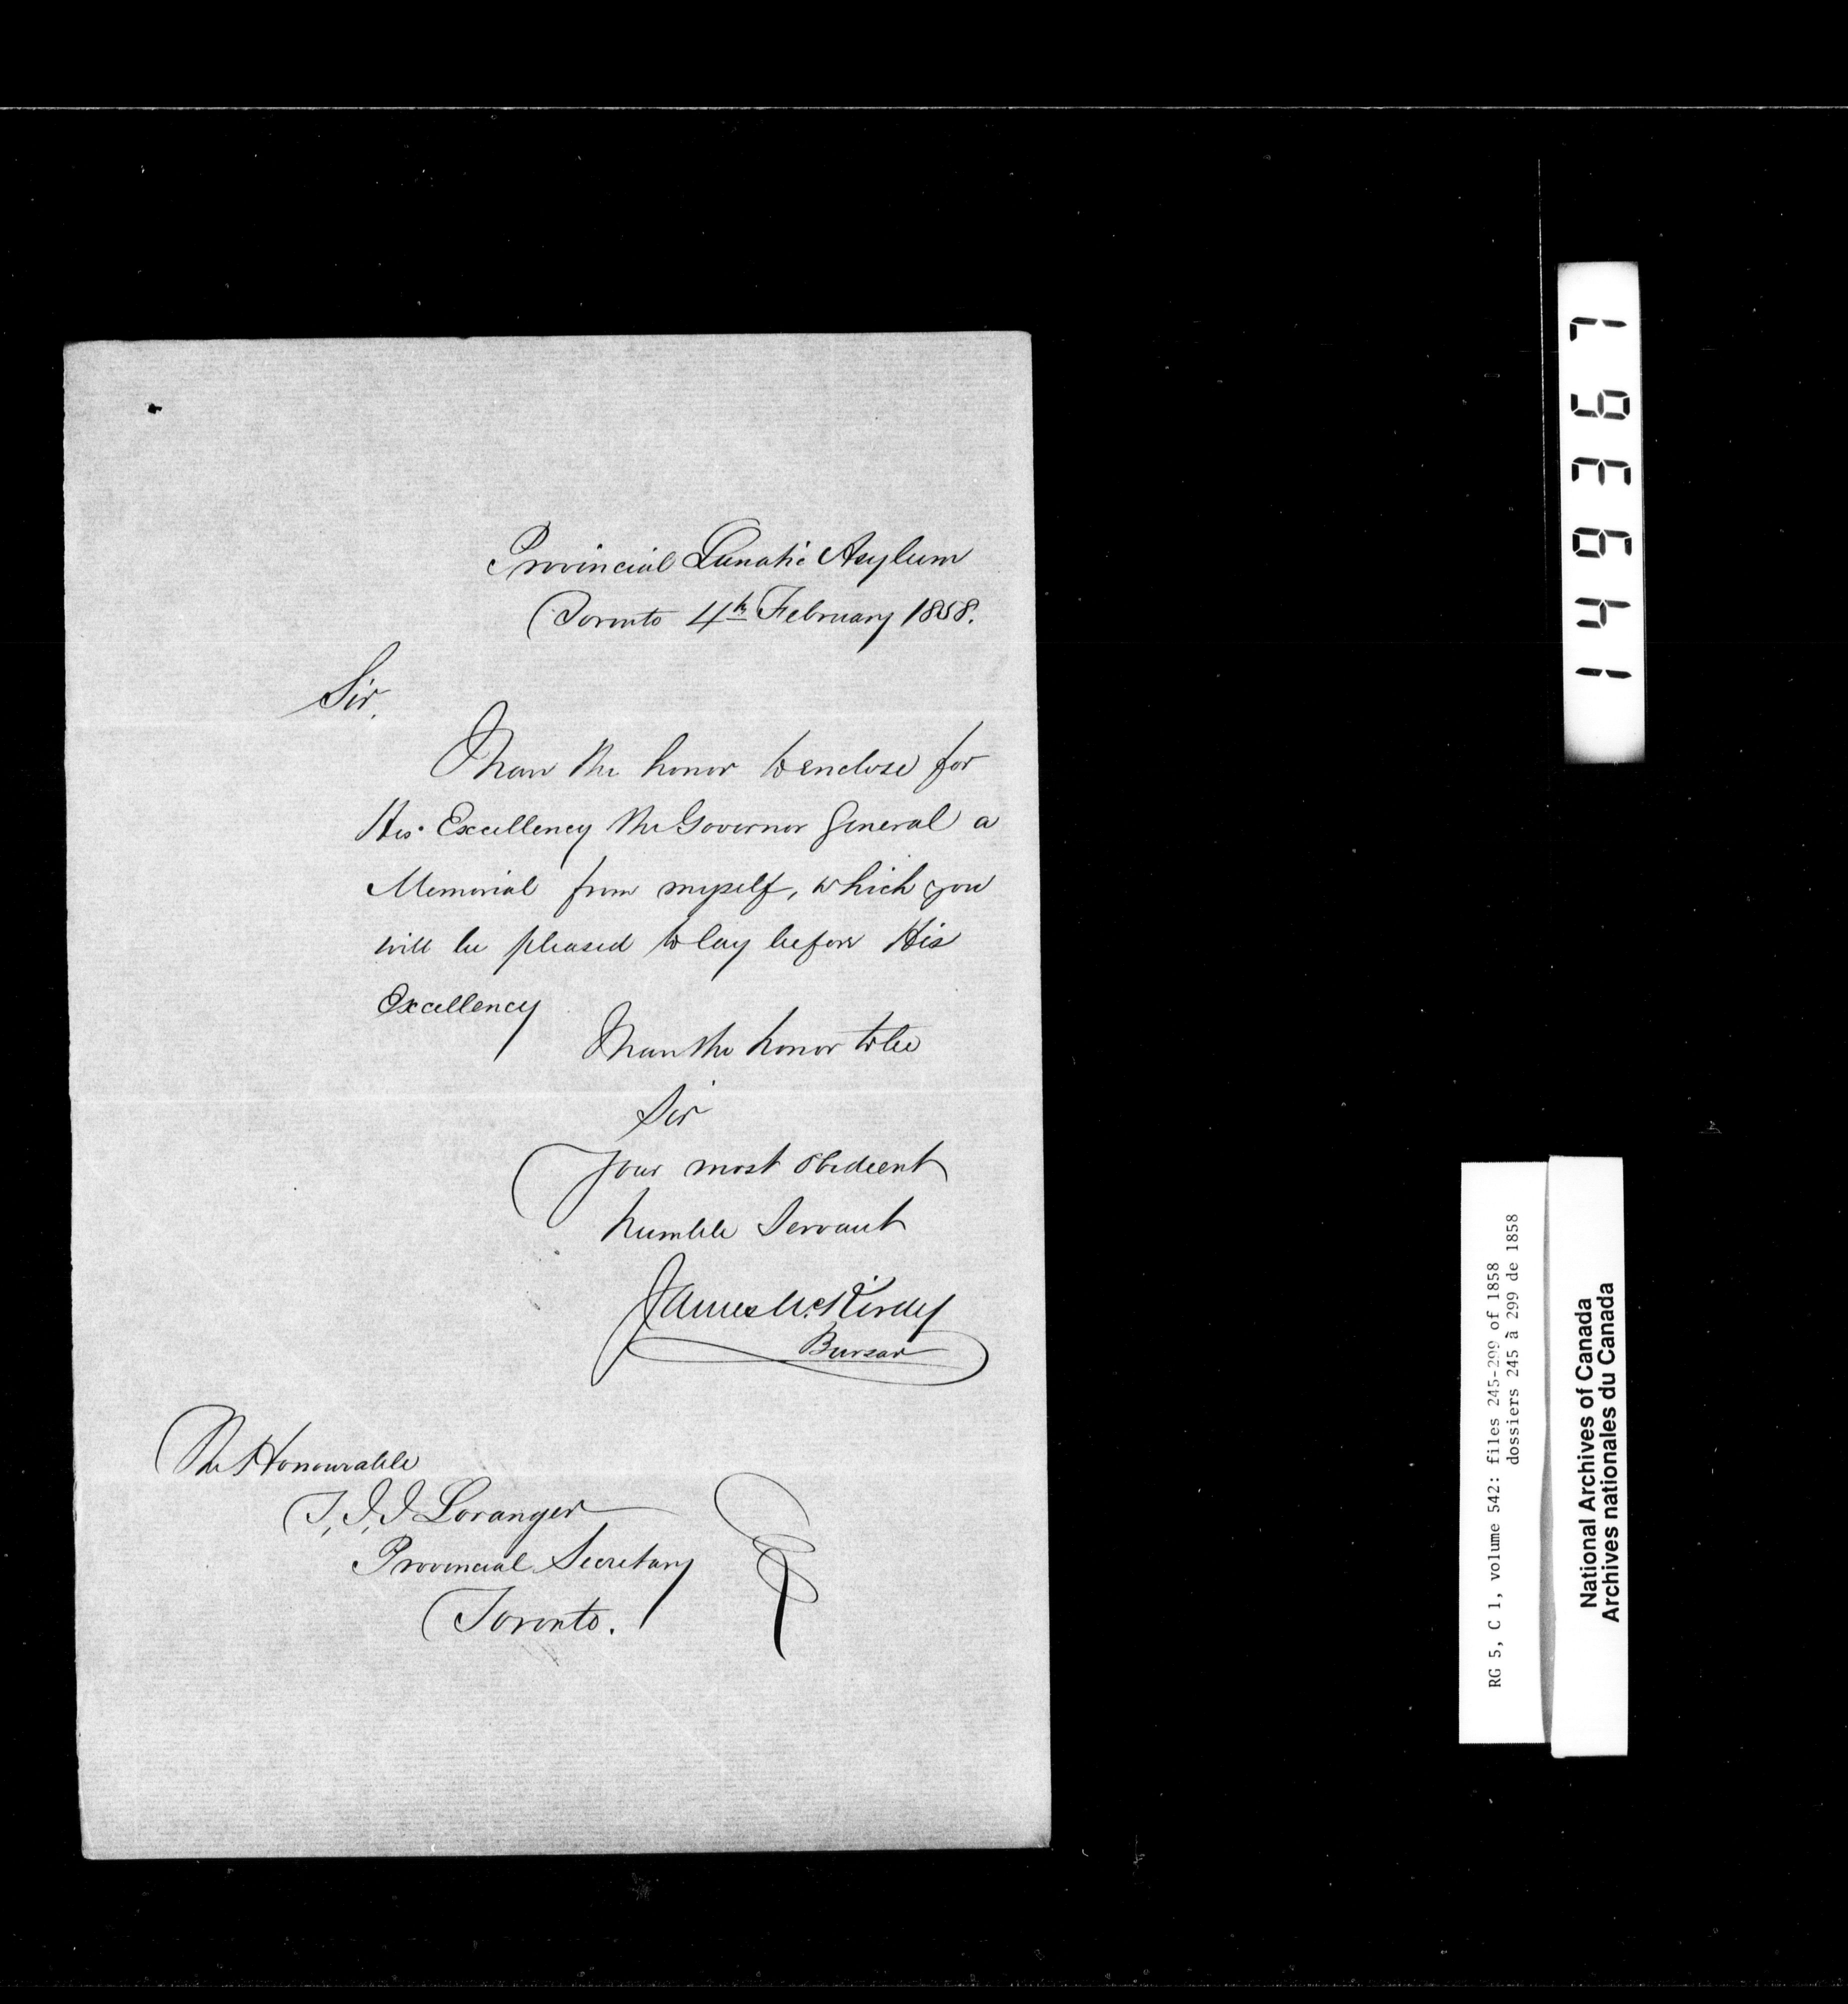 Provincial Lunatic Asylum
Toronto 4th February 1858.
Sir,
I have the honor to enclose for
His Excellency the Governor General a
Memorial from myself, which you
will be pleased to lay before His
Excellency
I have the honor to be
Sir
Your most obedient
humble Servant
James McKirdy
Bursar
The Honourable
T, J, J Loranger
Provincial Secretary
Toronto.
149367
RG 5, C 1, volume 542: files 245-299 of 1858
dossiers 245 à 299 de 1858
National Archives of Canada
Archives nationales du Canada